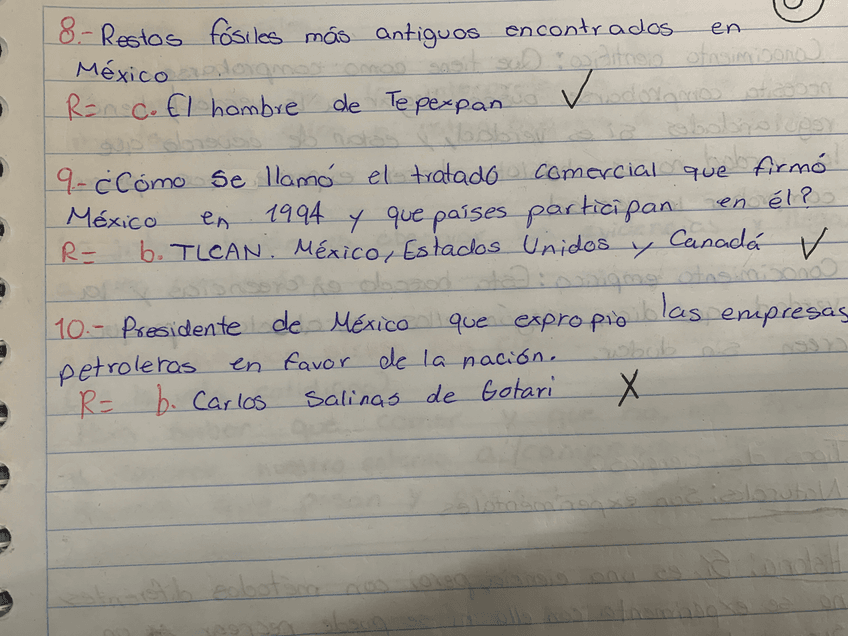 8.- Restos fósiles más antiguos encontrados en
México
R= c. El hombre de Tepexpan ✓
9.- ¿Cómo se llamó el tratado comercial que firmó
México en 1994 y que países participan en él?
R= b. TLCAN. México, Estados Unidos y Canadá ✓
10.- Presidente de México que expropio las empresas
petroleras en favor de la nación.
R= b. Carlos Salinas de Gotari X